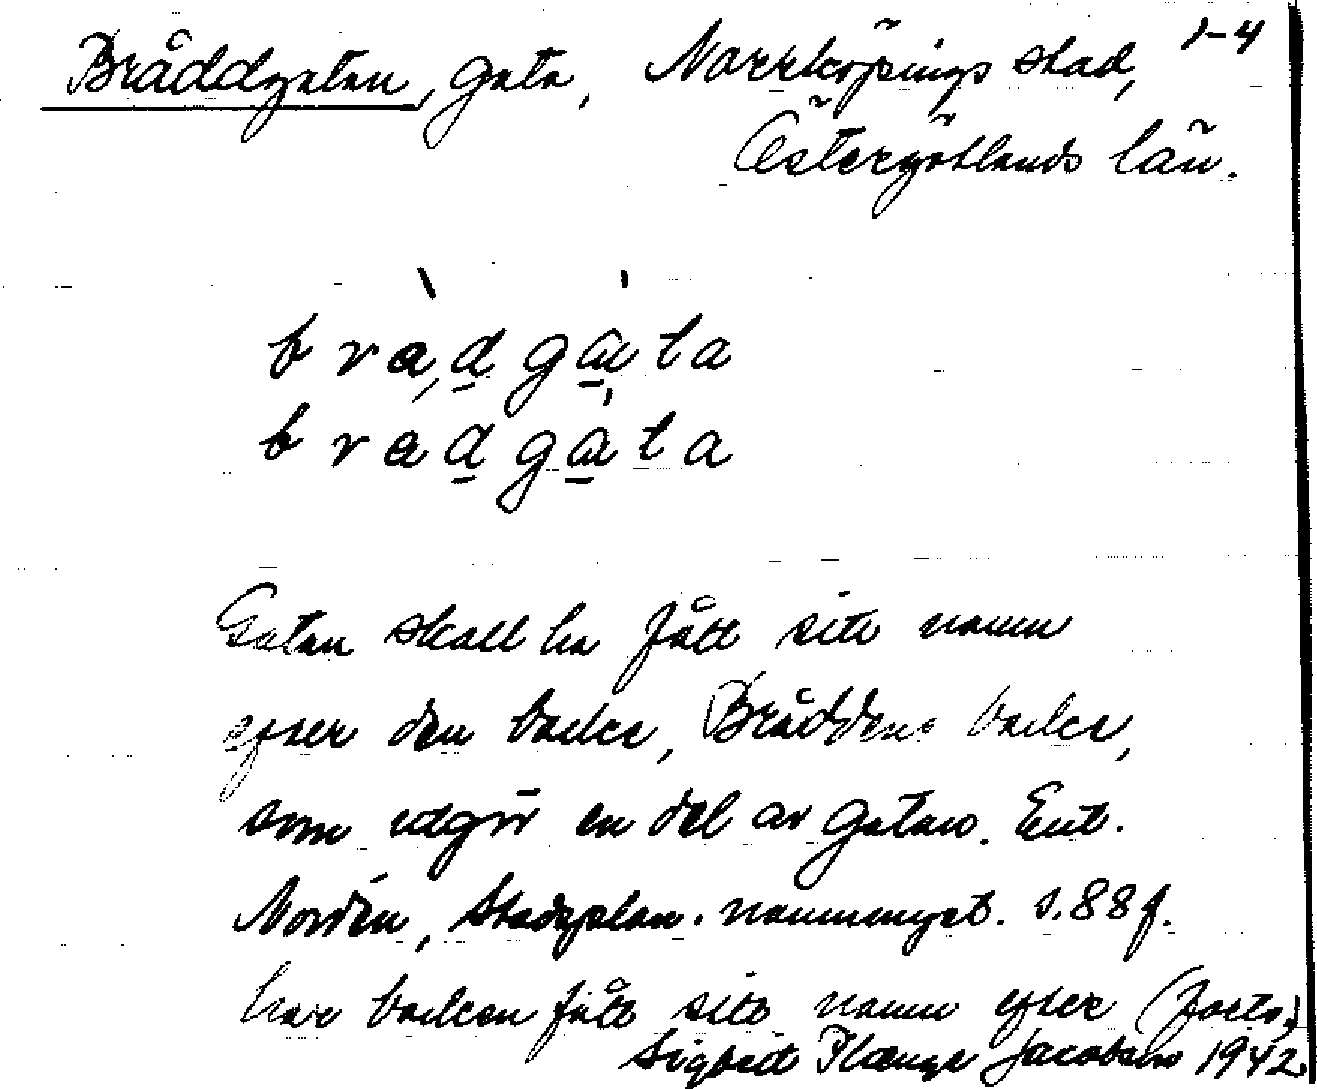 Bråddgatan, gata, Norrköpings stad, 1-4
Östergötlands län.
bràdgàta
bradgàta
Gatan skall ha fått sitt namn
efter den backe, Bråddens backe,
som utgör en del av gatan. Enl.
Nordén, Stadsplan. namnenyst. s. 88 f.
har backen fått sitt namn efter (forts.)
Sigbrit Plænge Jacobson 1942